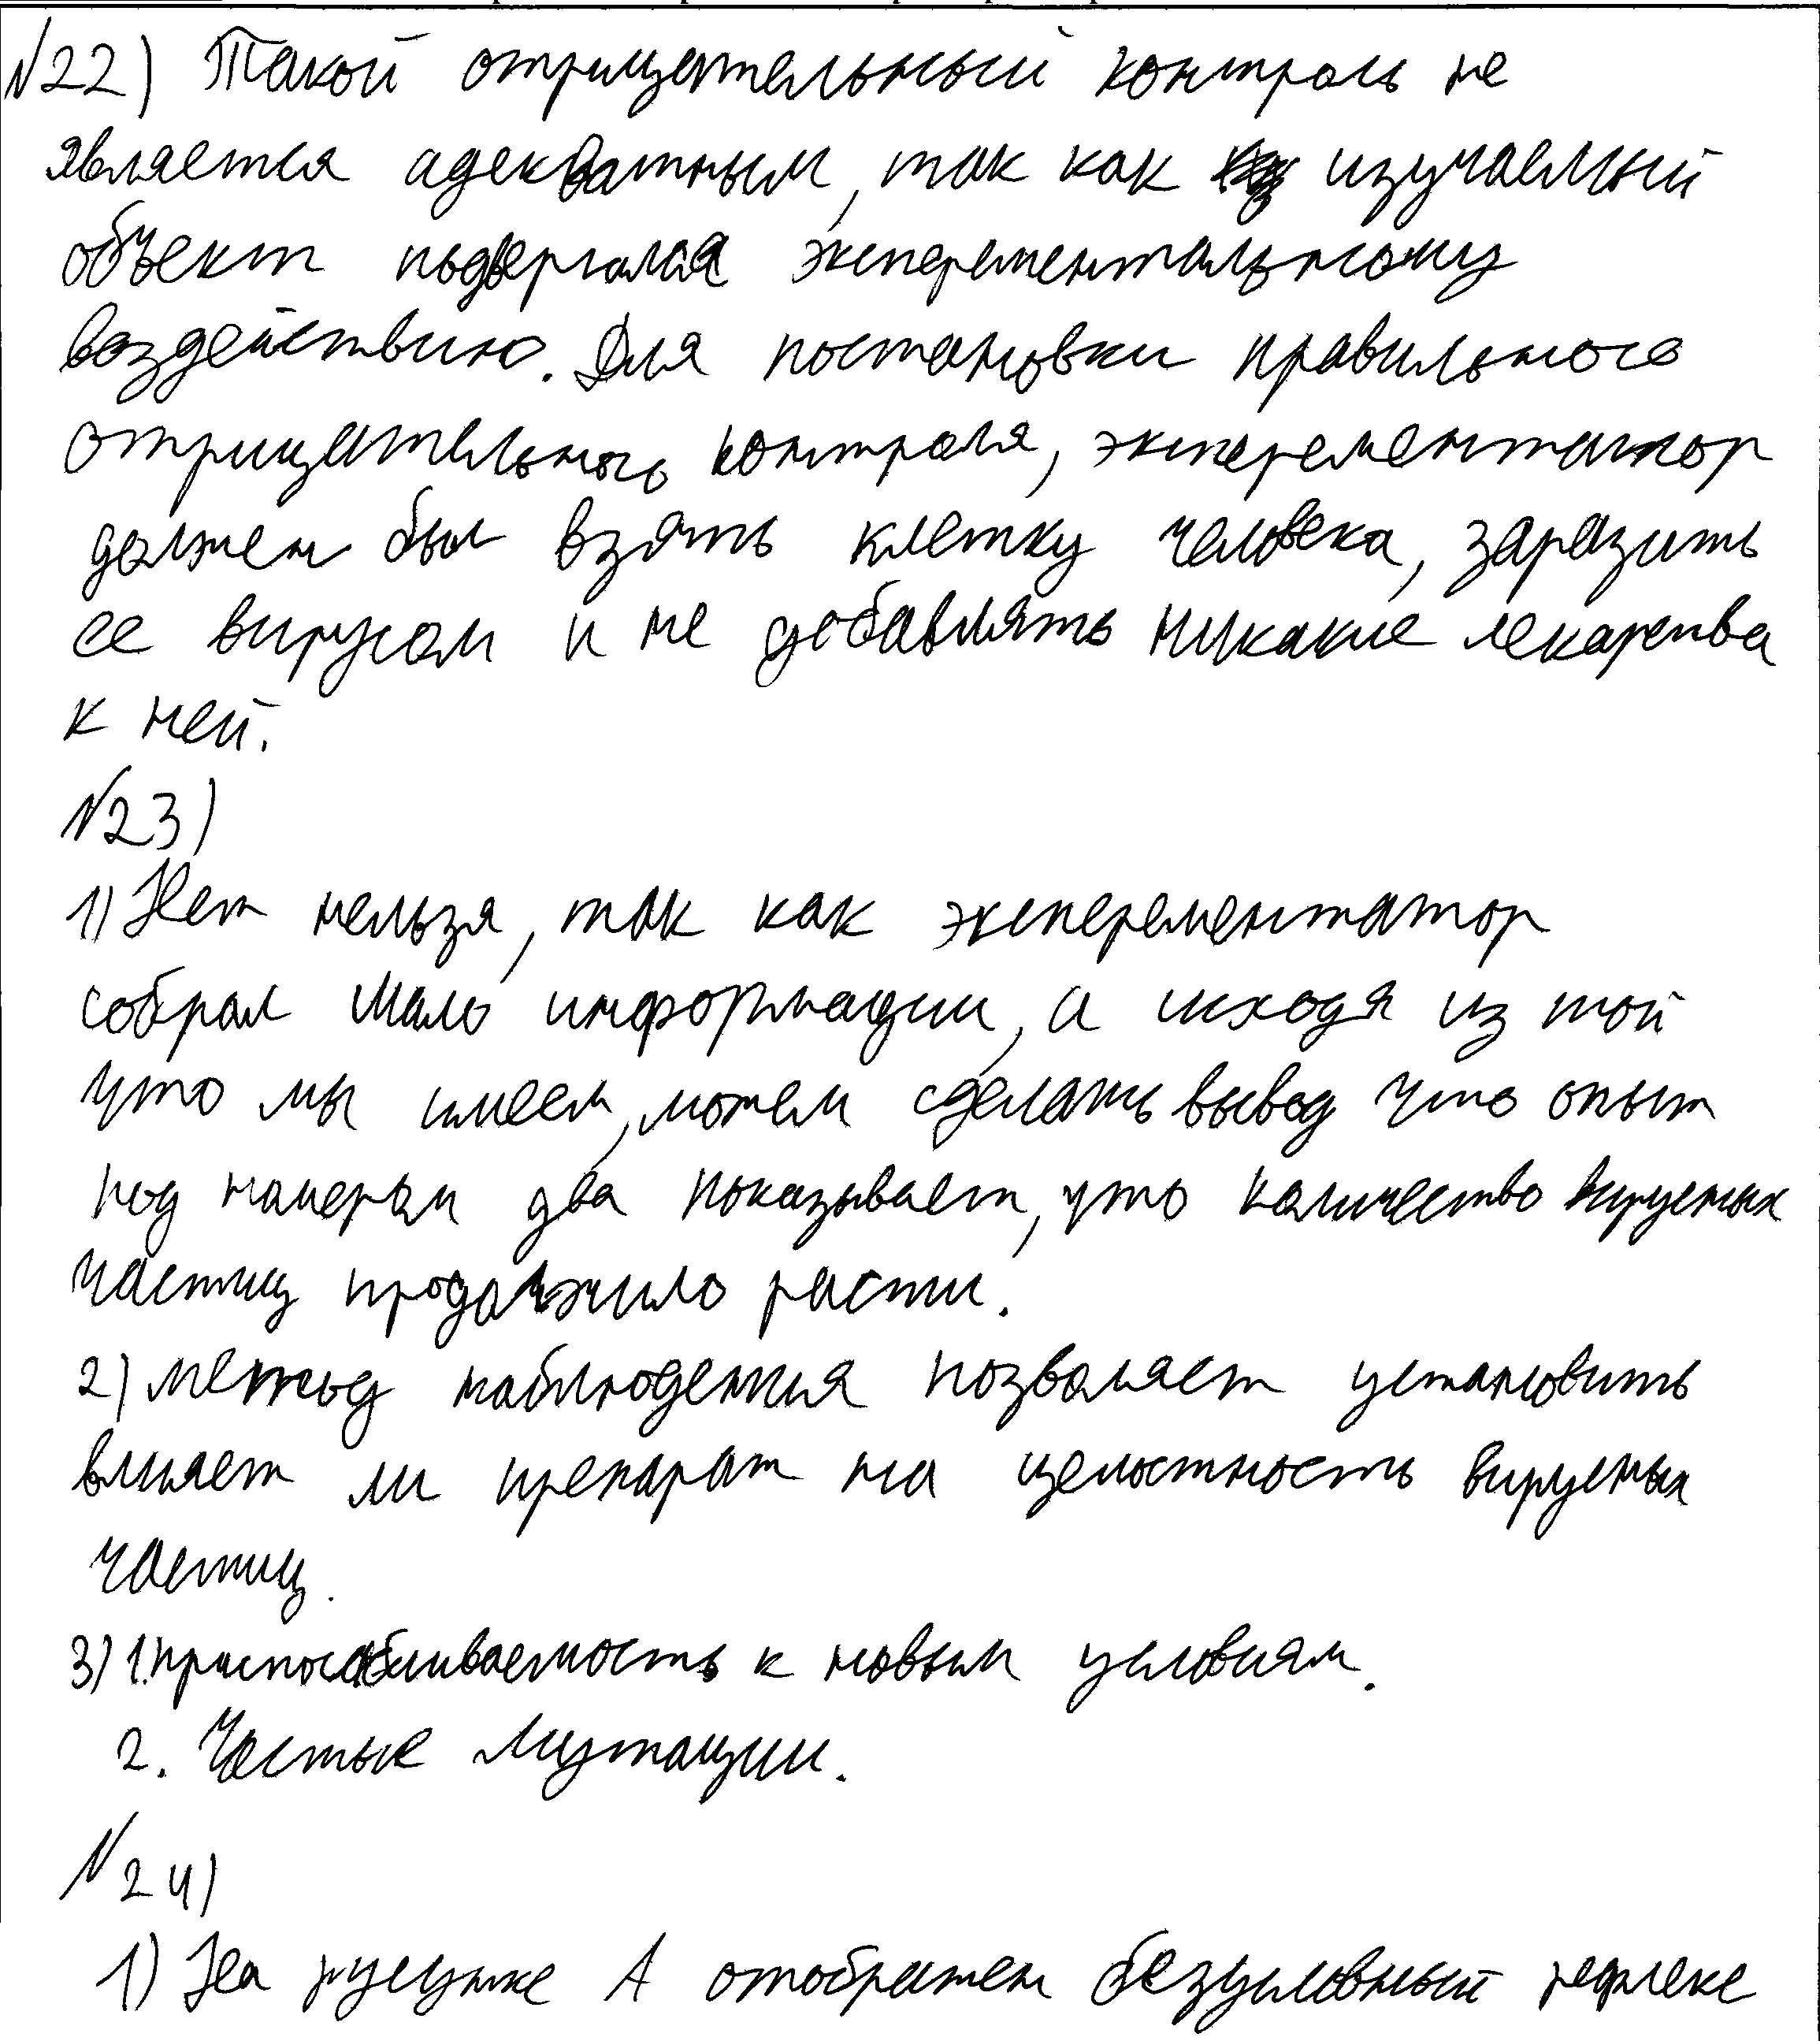 №22) Такой отрицательный контроль не
является адекватным, так как изучаемый
объект подвергался эксперементальному
воздействию. Для постановки правильного
отрицательного контроля, эксперементатор
должен был взять клетку человека, заразить
её вирусом и не добавлять никакие лекарства
к ней.
№23)
1) Нет нельзя, так как эксперементатор
собрал мало информации, а исходя из той
что мы имеем, можем сделать вывод что опыт
под номером два показывает, что количество вирусных
частиц продолжило расти.
2) метод наблюдения позволяет установить
влияет ли препарат на целостность вирусных
частиц.
3) 1. приспосабливаемость к новым условиям.
2. Частые мутации.
№24)
1) На рисунке А отображен безусловный рефлекс